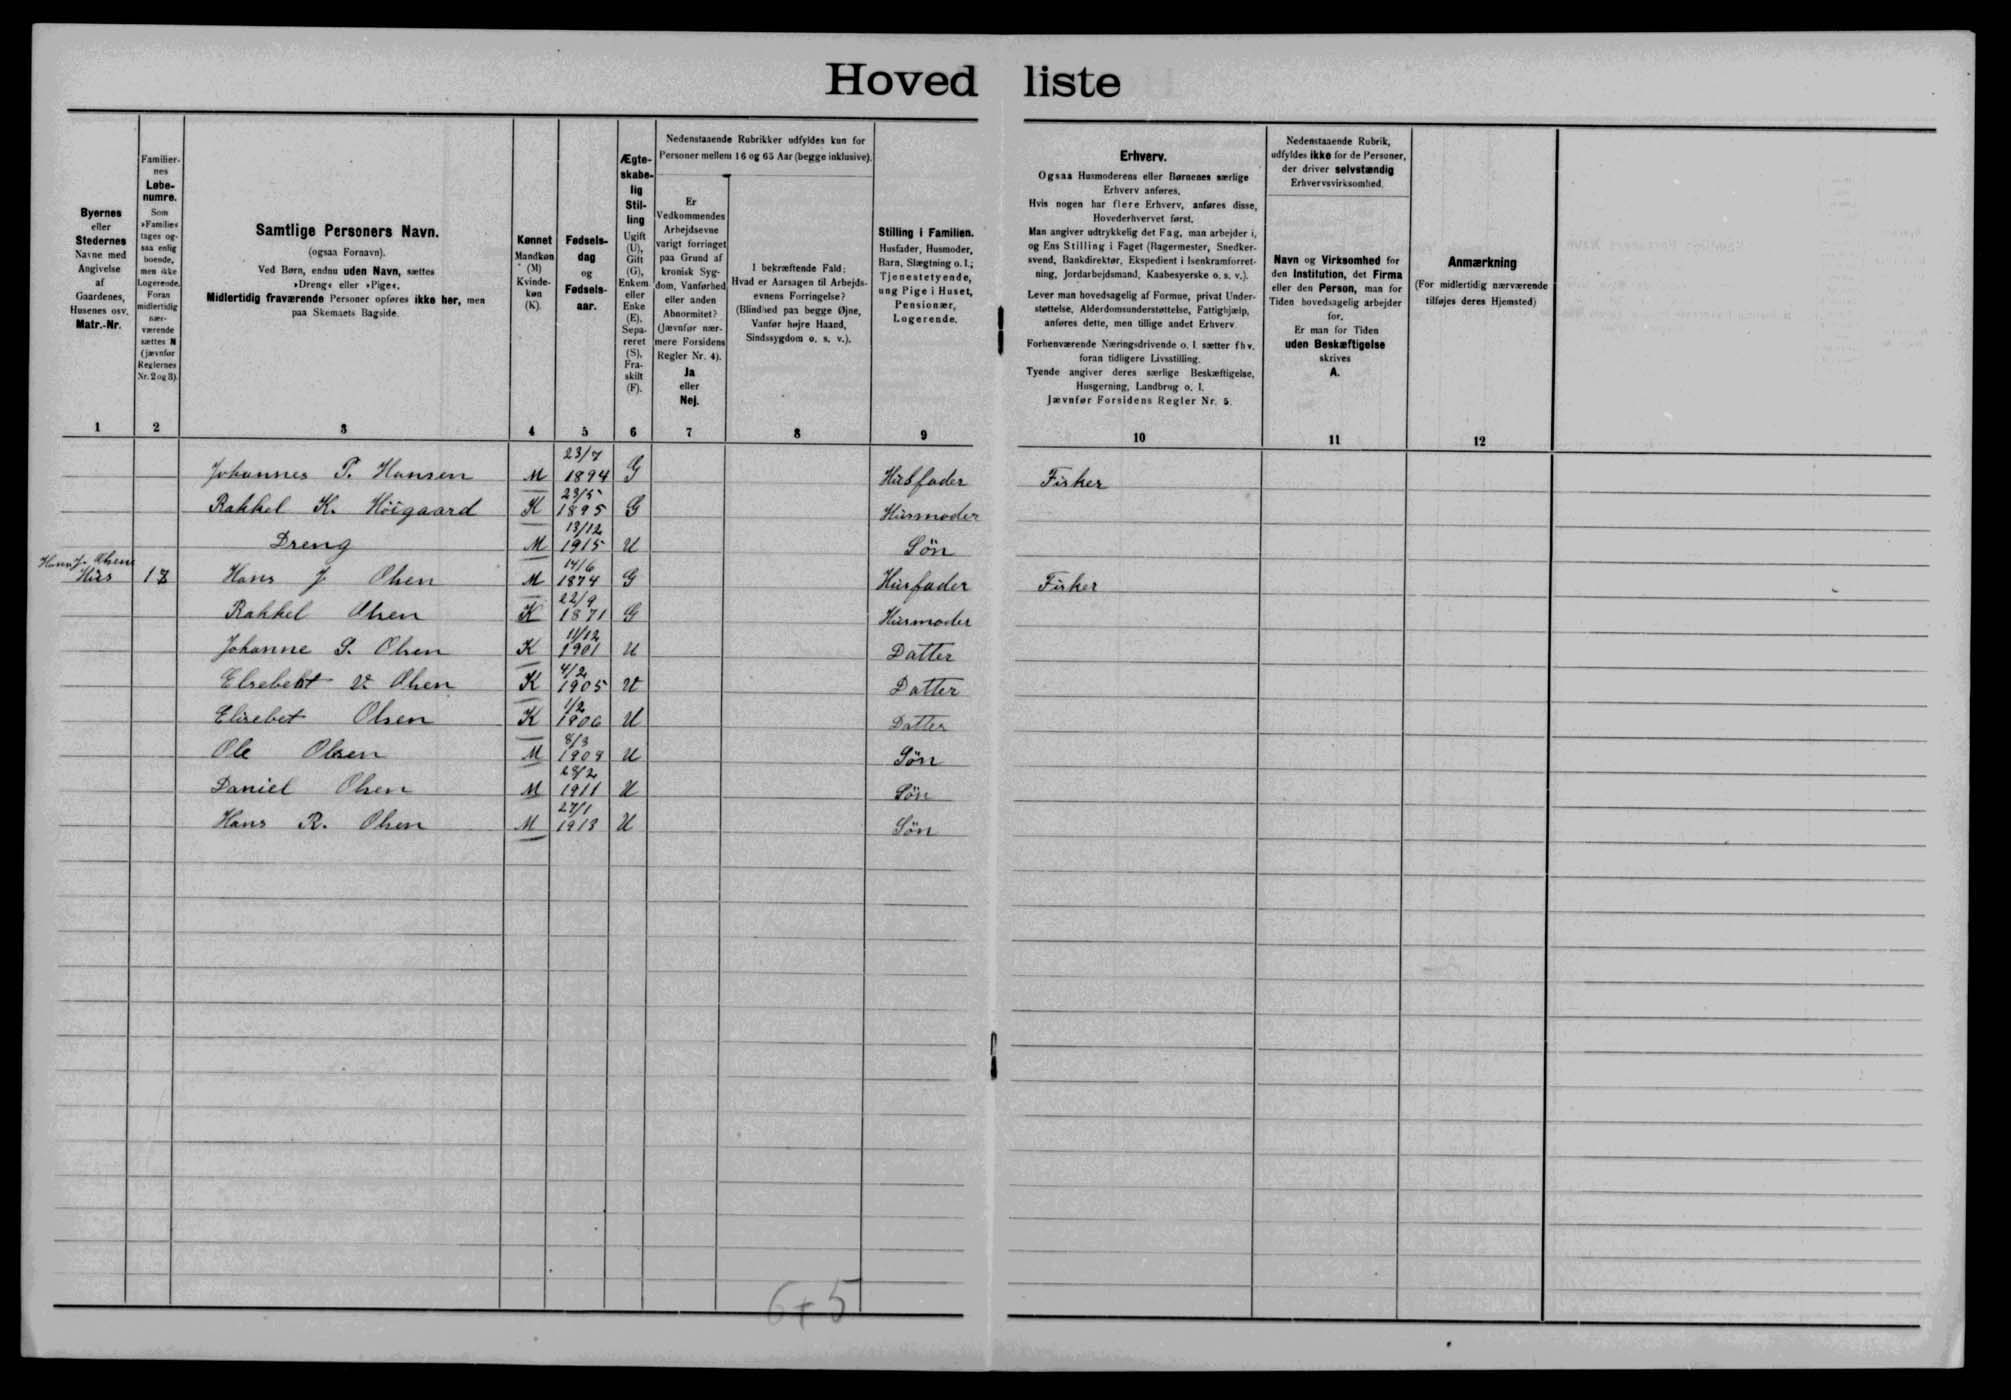 Hovedliste
Byernes
eller
Stedernes
Navne med
Angivelse
af
Gaardenes,
Husenes osv.
Matr.-Nr.
Familier-
nes
Løbe-
numre.
Som
»Familie«
tages og-
saa enlig
boende,
men ikke
Logerende.
Foran
midlertidig
nær-
værende
sættes N
(jævnfør
Reglernes
Nr. 2 og 3).
Samtlige Personers Navn.
(ogsaa Fornavn).
Ved Børn, endnu uden Navn, sættes
»Dreng« eller »Pige«.
Midlertidig fraværende Personer opføres ikke her, men
paa Skemaets Bagside.
Kønnet
Mandkøn
(M)
Kvinde-
køn
(K).
Fødsels-
dag
og
Fødsels-
aar.
Ægte-
skabe-
lig
Stil-
ling
Ugift
(U),
Gift
(G),
Enkem.
eller
Enke
(E),
Sepa-
reret
(S),
Fra-
skilt
(F).
Nedenstaaende Rubrikker udfyldes kun for
Personer mellem 16 og 65 Aar (begge inklusive).
Er
Vedkommendes
Arbejdsevne
varigt forringet
paa Grund af
kronisk Syg-
dom, Vanførhed
eller anden
Abnormitet?
(Jævnfør nær-
mere Forsidens
Regler Nr. 4).
Ja
eller
Nej.
I bekræftende Fald:
Hvad er Aarsagen til Arbejds-
evnens Forringelse?
(Blindhed paa begge Øjne,
Vanfør højre Haand,
Sindssygdom o. s. v.).
Stilling i Familien.
Husfader, Husmoder,
Barn, Slægtning o. l.;
Tjenestetyende,
ung Pige i Huset,
Pensionær,
Logerende.
Erhverv.
Ogsaa Husmoderens eller Børnenes særlige
Erhverv anføres.
Hvis nogen har flere Erhverv, anføres disse,
Hovederhvervet først.
Man angiver udtrykkelig det Fag, man arbejder i,
og Ens Stilling i Faget (Bagermester, Snedker-
svend, Bankdirektør, Ekspedient i Isenkramforret-
ning, Jordarbejdsmand, Kaabesyerske o. s. v.).
Lever man hovedsagelig af Formue, privat Under-
støttelse, Alderdomsunderstøttelse, Fattighjælp,
anføres dette, men tillige andet Erhverv.
Forhenværende Næringsdrivende o. l. sætter fhv.
foran tidligere Livsstilling.
Tyende angiver deres særlige Beskæftigelse,
Husgerning, Landbrug o. l.
Jævnfør Forsidens Regler Nr. 5.
Nedenstaaende Rubrik,
udfyldes ikke for de Personer,
der driver selvstændig
Erhvervsvirksomhed.
Navn og Virksomhed for
den Institution, det Firma
eller den Person, man for
Tiden hovedsagelig arbejder
for.
Er man for Tiden
uden Beskæftigelse
skrives
A.
Anmærkning
(For midlertidig nærværende
tilføjes deres Hjemsted)
1 2 3 4 5 6 7 8 9 10 11 12
23/7
Johannes P. Hansen M 1894 G Husfader Fisker
23/5
Rakkel K. Höigaard K 1895 G Husmoder
13/12
Dreng M 1915 U Sön
Hans J. Olsens 14/6
Hus 17 Hans J Olsen M 1874 G Husfader Fisker
22/9
Rakkel Olsen K 1871 G Husmoder
11/12
Johanne S. Olsen K 1901 U Datter
4/2
Elsebet Olsen K 1905 U Datter
1/2
Elisebet Olsen K 1906 U Datter
8/3
Ole Olsen M U Sön
28/2
Daniel Olsen M 1911 U Sön
27/1
Hans R. Olsen M 1913 U Sön
6+5